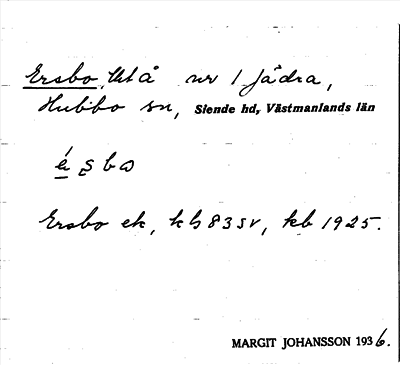 Ersbo, Utå nr 1 Jädra,
Hubbo sn, Siende hd, Västmanlands län
é ṣ b ω
Ersbo ek, kb 83 SV, kb 1925.
MARGIT JOHANSSON 1936.